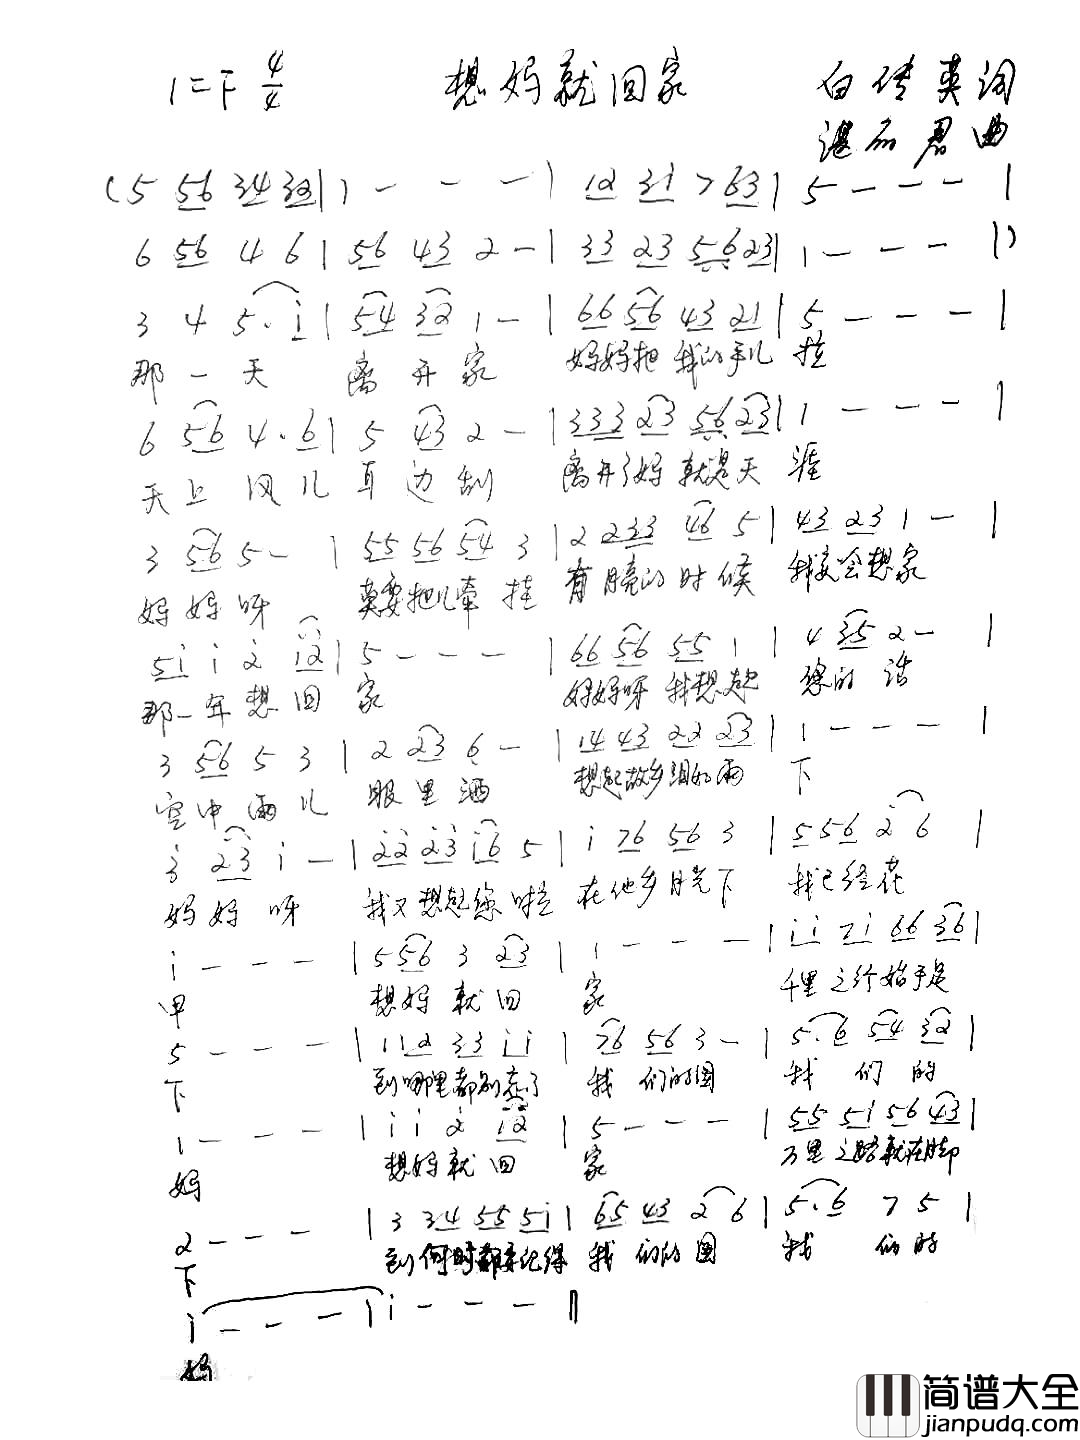 1=F 4/4 想妈就回家 白传英词
湛石君曲
(5 56 34 32 | 1 - - - | 12 31 7 63 | 5 - - - |
6 56 4 6 | 56 43 2 - | 33 23 56 23 | 1 - - - |)
3 4 5. i | 54 32 1 - | 66 56 43 21 | 5 - - - |
那一天 离开家 妈妈把我的手儿拉
6 56 4. 6 | 5 43 2 - | 333 23 56 23 | 1 - - - |
天上风儿耳边刮 离开了妈就是天涯
3 56 5 - | 55 56 54 3 | 2 233 46 5 | 43 23 1 - |
妈妈呀 莫要把儿牵挂 有月亮的时候 我会想家
5i i 2 i2 | 5 - - - | 66 56 55 1 | 4 35 2 - |
那一年想回家 妈妈呀我想起 您的话
3 56 5 3 | 2 23 6 - | 14 43 22 23 | 1 - - - |
空中雨儿 眼里洒 想起故乡泪如雨下
3 23 i - | 22 23 i6 5 | i 76 56 3 | 5 56 2 6 |
妈妈呀 我又想起您啦 在他乡月光下 我已经花
i - - - | 5 56 3 23 | 1 - - - | i i 7i 66 36 |
甲 想妈就回家 千里之行始于足
5 - - - | 11 2 33 ii | 76 56 3 - | 5. 6 54 32 |
下 到哪里都别忘了 我们的国 我们的
1 - - - | i i 2 i2 | 5 - - - | 55 51 56 43 |
妈 想妈就回家 万里之路就在脚
2 - - - | 3 34 55 5i | 65 43 2 6 | 5. 6 7 5 |
下 到何时都要记得 我们的国 我们的
i - - - | i - - - ‖
妈
简谱大全
jianpudq.com